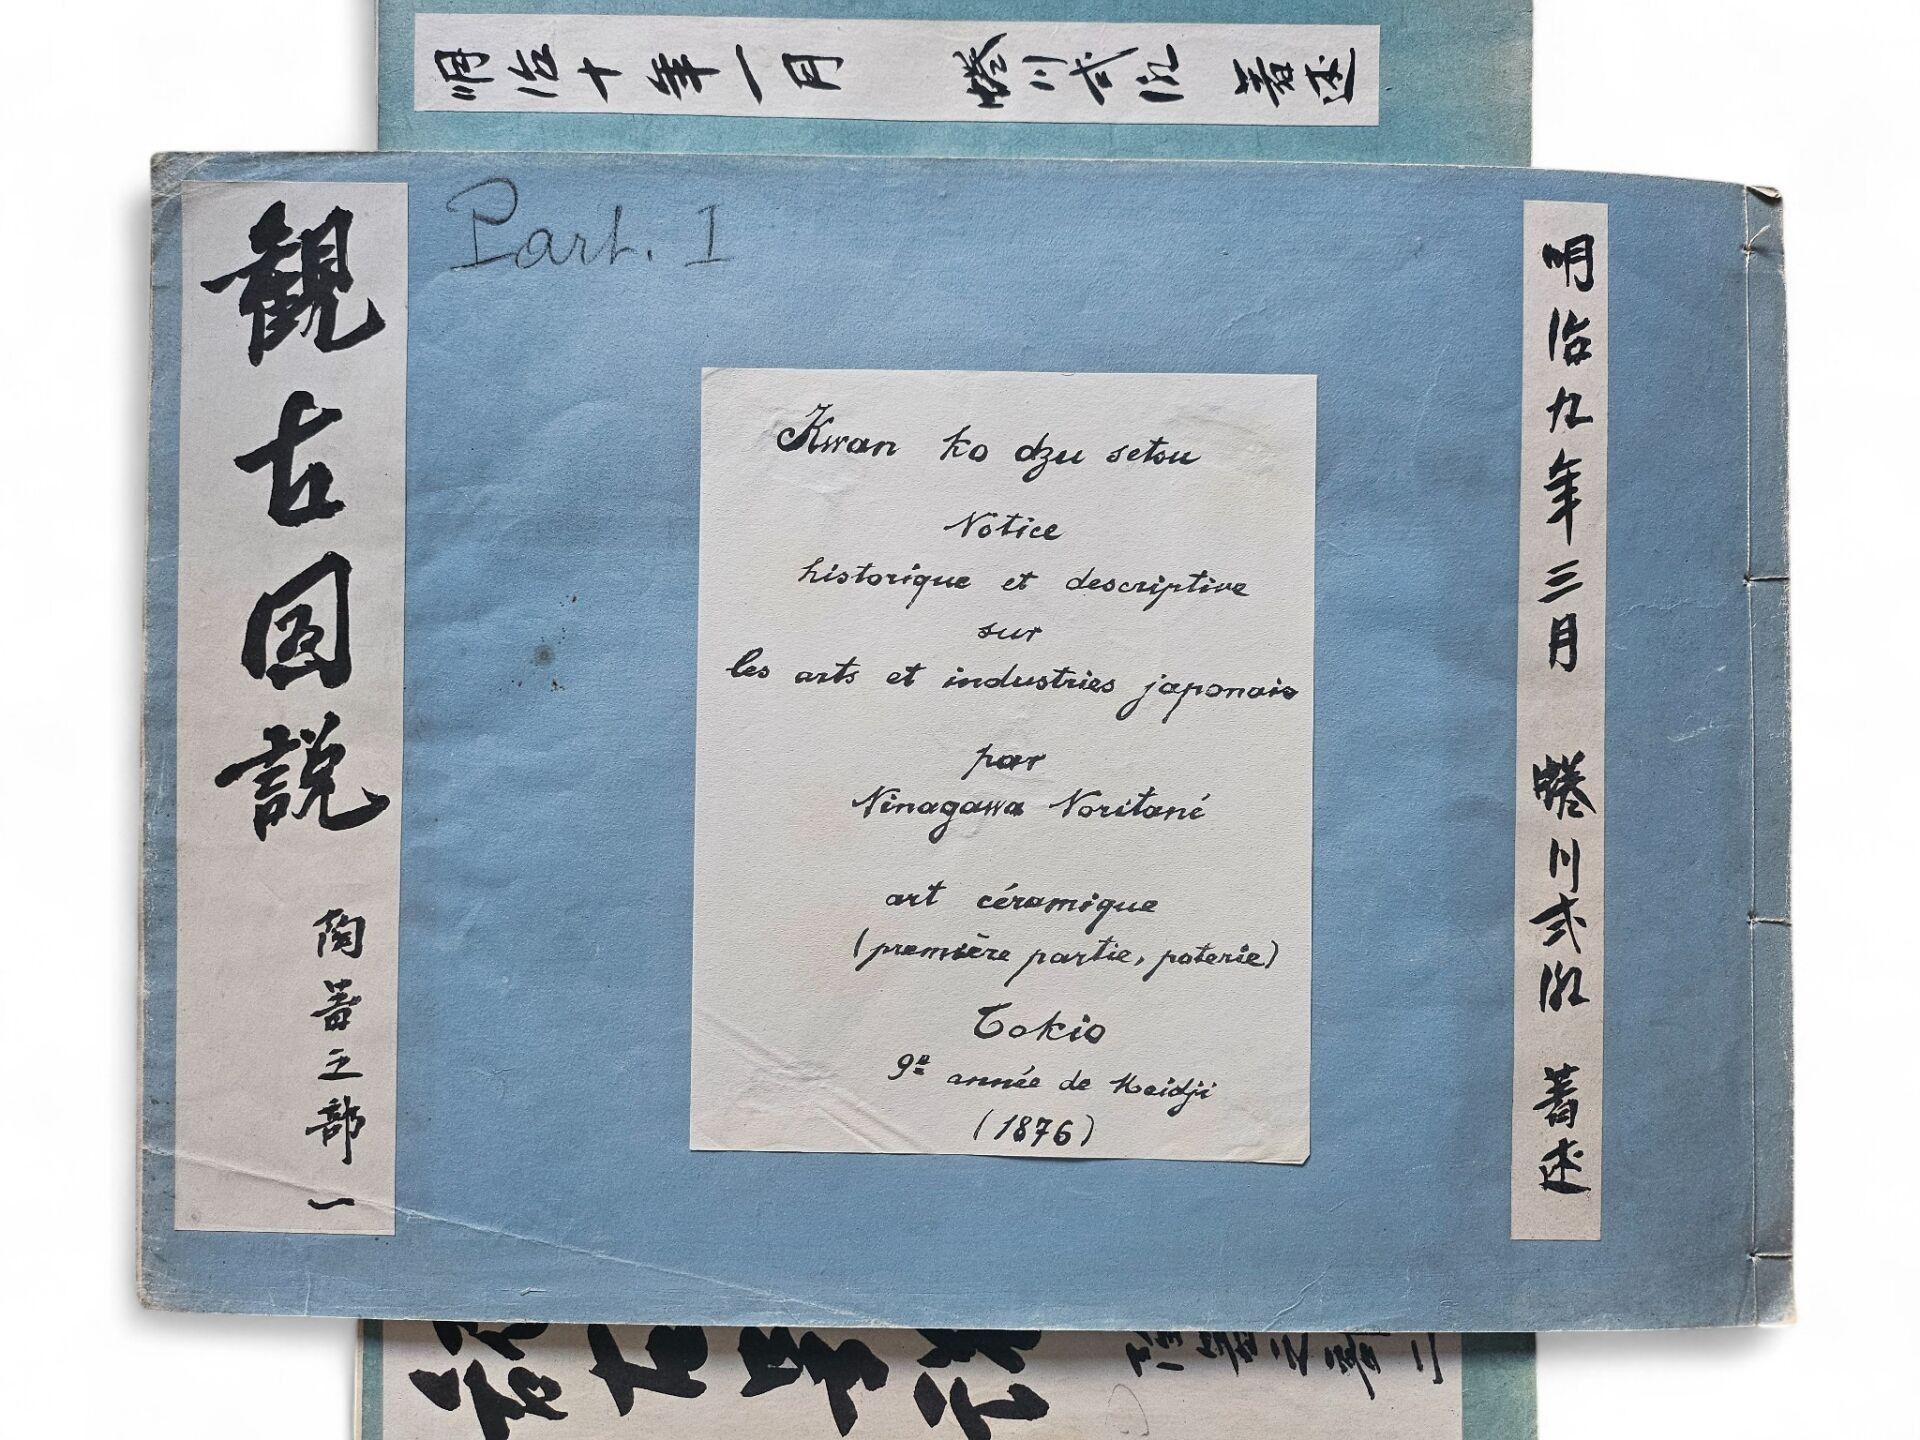 明治十年一月 蜷川式胤 著述
観古図説 陶器之部 一
Part. I
Kwan ko dzu setsu
Notice
historique et descriptive
sur
les arts et industries japonais
par
Ninagawa Noritané
art céramique
(première partie, poterie)
Tokio
9e année de Meidji
(1876)
明治九年三月 蜷川式胤 著述